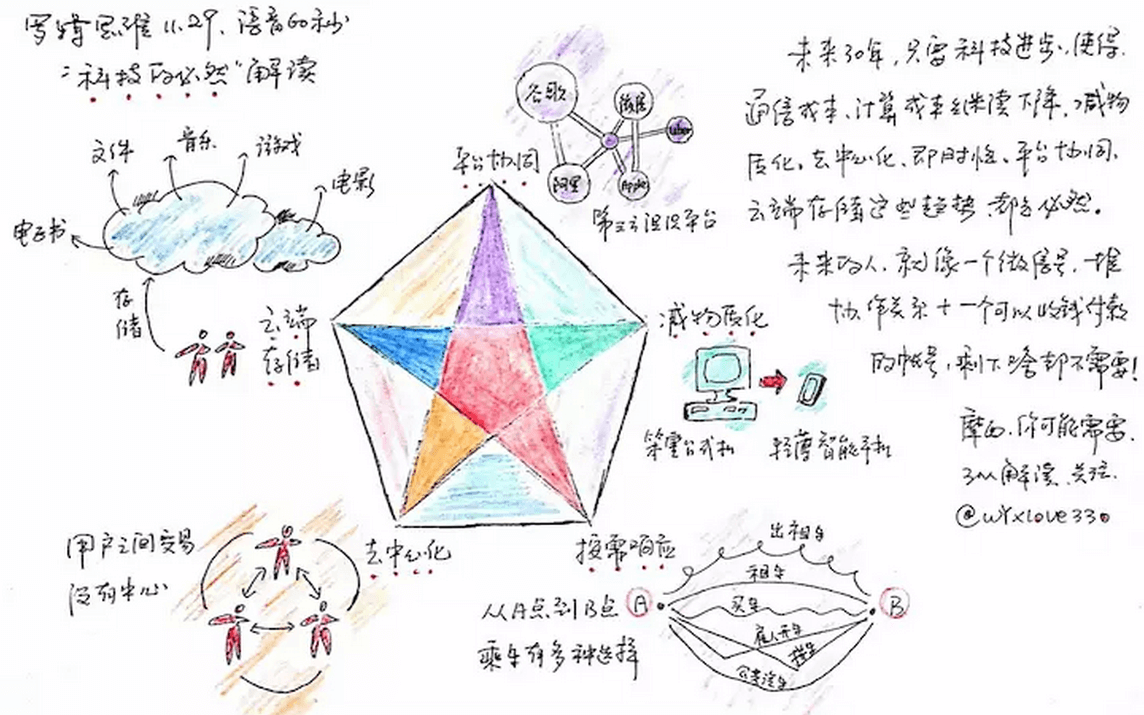 罗辑思维 11.29、语音60秒
:"科技的必然"解读
文件
音乐
游戏
电影
电子书
存储
云端
存储
平台协同
谷歌
微信
uber
阿里
Apple
第三方识识平台
未来30年,只需科技进步、使得
通信成本、计算成本继续下降,减物
质化、去中心化、即时性、平台协同、
云端存储这些趋势,都是必然。
未来的人,就像一个微信号,一堆
协作关系+一个可以收钱付款
的帐号,剩下啥都不需要!
减物质化
笨重台式机
轻薄智能手机
摩西,你可能需要
解读、关注
@wyxlove330
用户之间交易
没有中心
去中心化
按需响应
从A点到B点
乘车有多种选择
A
B
出租车
租车
买车
雇人开车
搭车
公共汽车